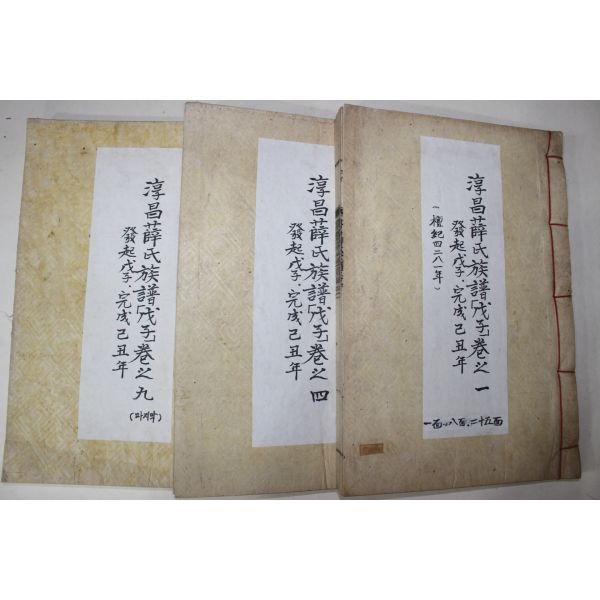 淳昌薛氏族譜「戊子」卷之一
發起戊子、完成己丑年
(檀紀四二八一年)
淳昌薛氏族譜「戊子」卷之四
發起戊子、完成己丑年
淳昌薛氏族譜「戊子」卷之九
發起戊子、完成己丑年
(마지막)